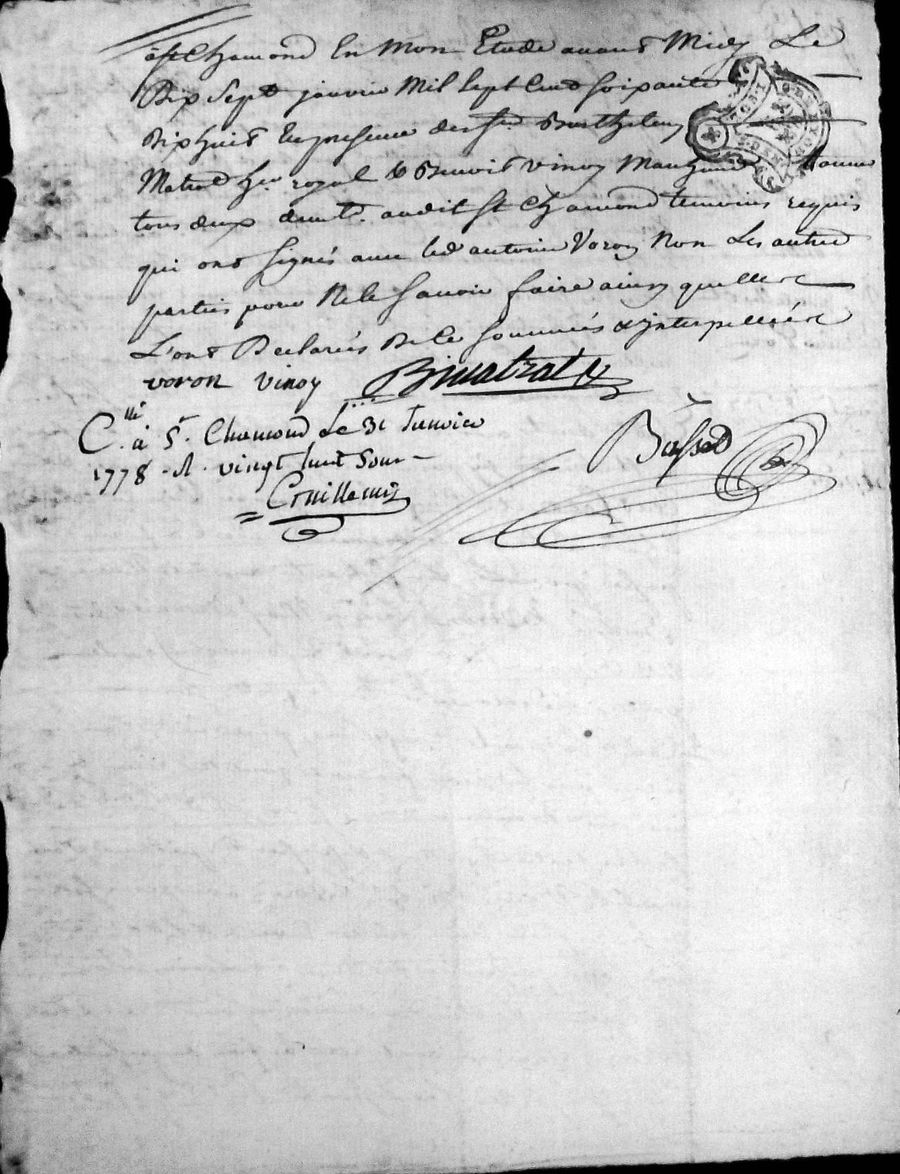 à St Chamond En Mon Etude avant Midy Le
Dix Sept janvier Mil Sept Cent soixante
Dix huit En presence de sr. Barthelemy
Matrat hr. royal & Benoit vinoy
tous deux audit St Chamond temoins requis
qui ont signés avec led antoine Voron Non Les autres
parties pour Ne le savoir faire ainsy quelles
L'ont Declarées De ce sommées & interpellées
voron vinoy Bmatrat
C.llé à St. Chamond Le 31 Janvier
1778 . vingt huit Sour
Basset